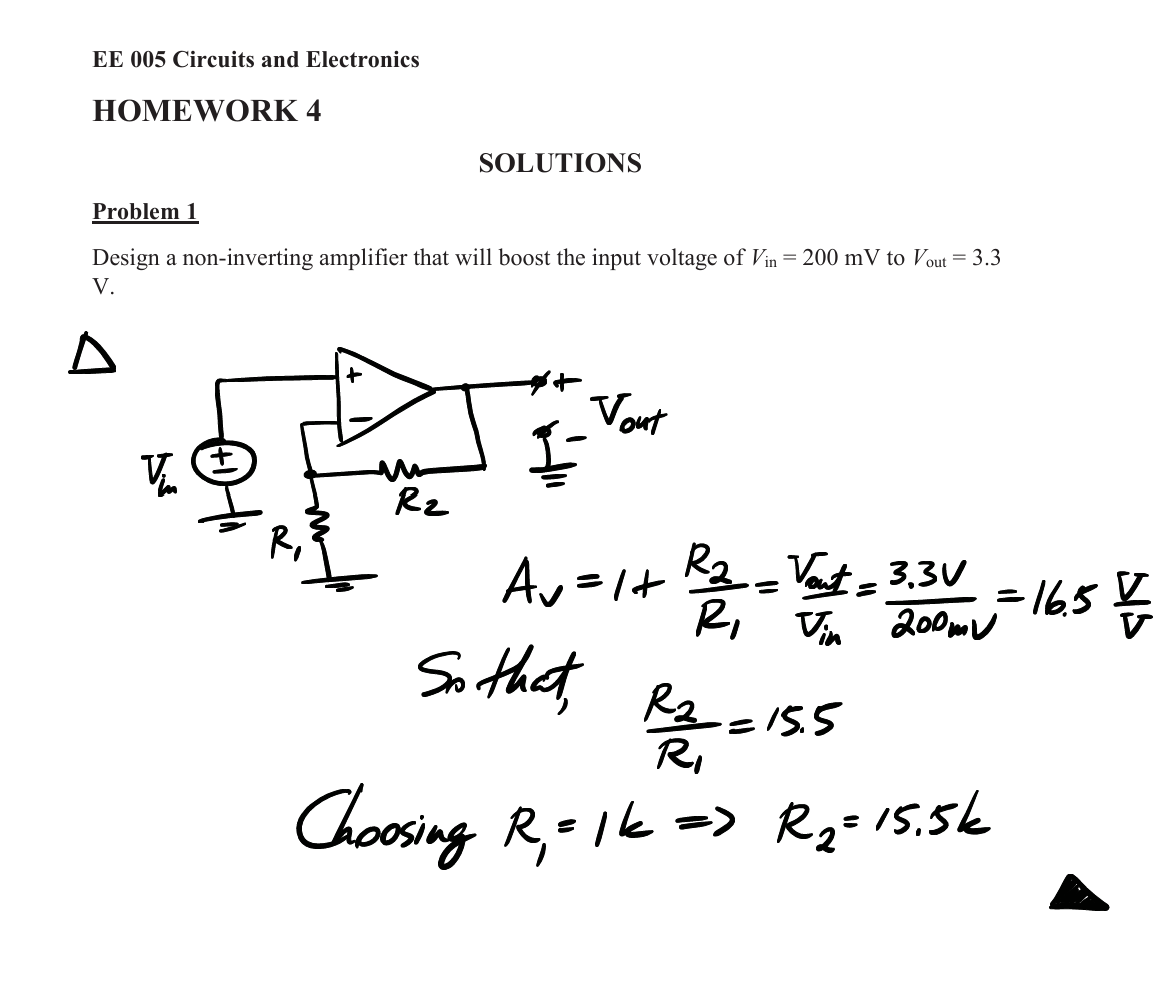 EE 005 Circuits and Electronics
HOMEWORK 4
SOLUTIONS
Problem 1
Design a non-inverting amplifier that will boost the input voltage of Vin = 200 mV to Vout = 3.3
V.
+
+
Vout
−
−
Vin
+
−
R2
R1
Av = 1 + R2/R1 = Vout/Vin = 3.3V/200mV = 16.5 V/V
So that,
R2/R1 = 15.5
Choosing R1 = 1k => R2 = 15.5k